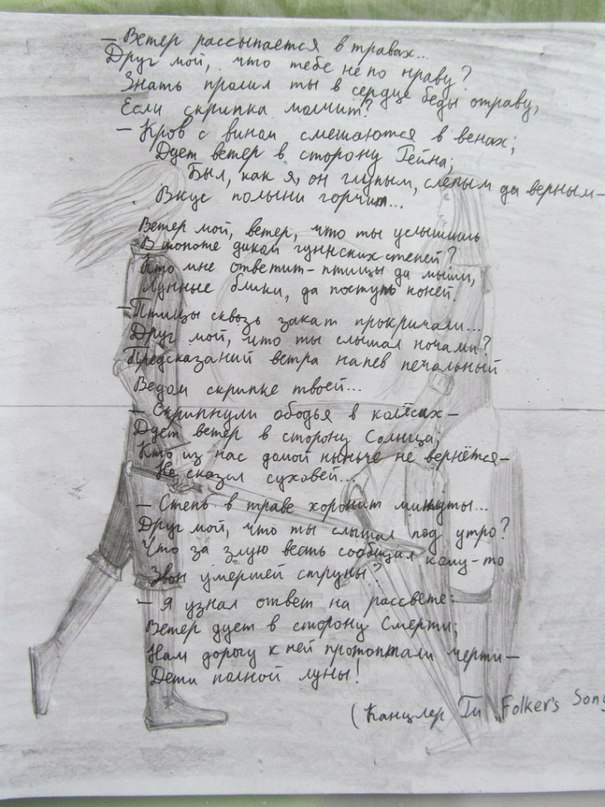 — Ветер рассыпается в травах...
Друг мой, что тебе не по нраву?
Знать пролил ты в сердце беды отраву,
Если скрипка молчит?
— Кровь с вином смешаются в венах;
Дует ветер в сторону Гейна;
Был, как я, он глупым, слепым да верным —
Вкус полыни горчит...
Ветер мой, ветер, что ты услышишь
В топоте диком гуннских степей?
Кто мне ответит — птицы да мыши,
Лунные блики, да поступь коней.
— Птицы сквозь закат прокричали...
Друг мой, что ты слышал ночами?
Предсказаний ветра напев печальный
Ведом скрипке твоей...
— Скрипнули ободья в колёсах —
Дует ветер в сторону Солнца;
Кто из нас домой нынче не вернётся —
Не сказал суховей...
— Степь в траве хоронит минуты...
Друг мой, что ты слышал под утро?
Что за злую весть сообщил кому-то
Звон умершей струны?
— Я узнал ответ на рассвете:
Ветер дует в сторону Смерти;
Нам дорогу к ней протоптали черти —
Дети полной луны!
(Канцлер Ги Folker's Song